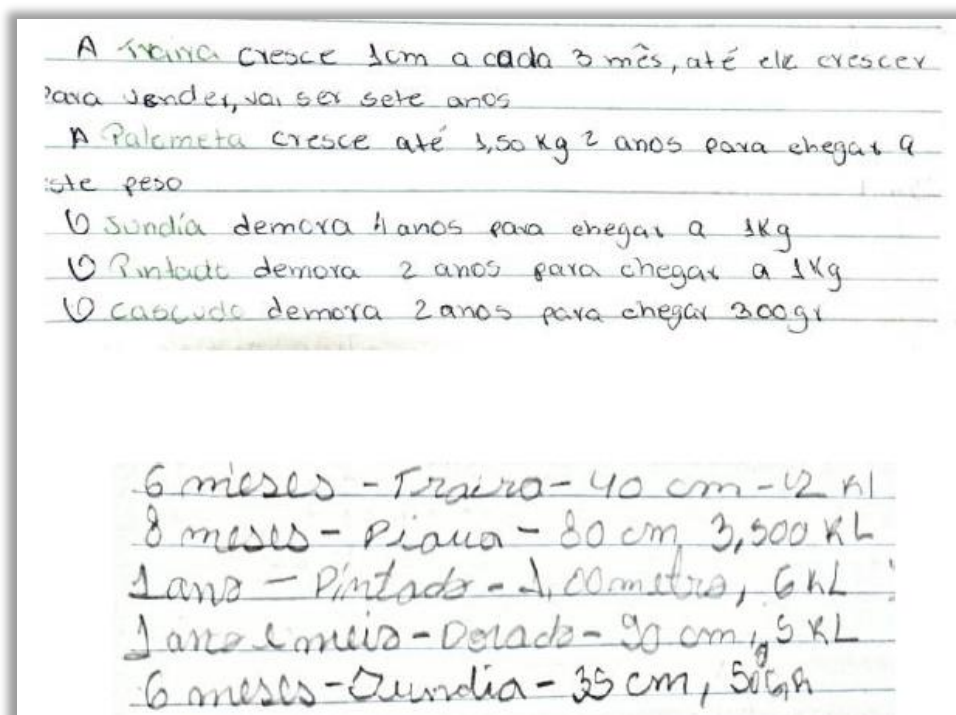 A Traira cresce 1cm a cada 3 mês, até ele crescer
para vender, vai ser sete anos
A Palometa cresce até 1,50 Kg 2 anos para chegar a
este peso
O Jundía demora 4 anos para chegar a 1Kg
O Pintado demora 2 anos para chegar a 1Kg
O cascudo demora 2 anos para chegar 300gr
6 mieses - Traira - 40 cm - 12 Kl
8 meses - Piaua - 80 cm, 3,500 KL
1 ano - Pintado - 1,00 metro, 6 KL
1 ano e meio - Dorado - 90 cm, 5 KL
6 meses - Jundia - 35 cm,